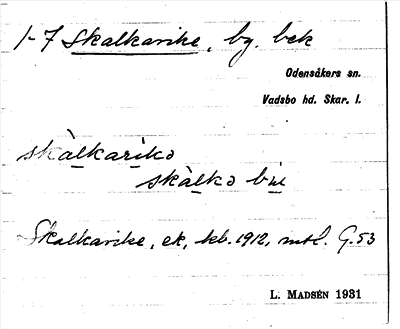 1-7 Skalkarike, bg. bek
Odensåkers sn.
Vadsbo hd. Skar. l.
skàlkarikə
skàlkə
Skalkarike, ek, kb. 1912, mtl. G.53
L. MADSÉN 1931